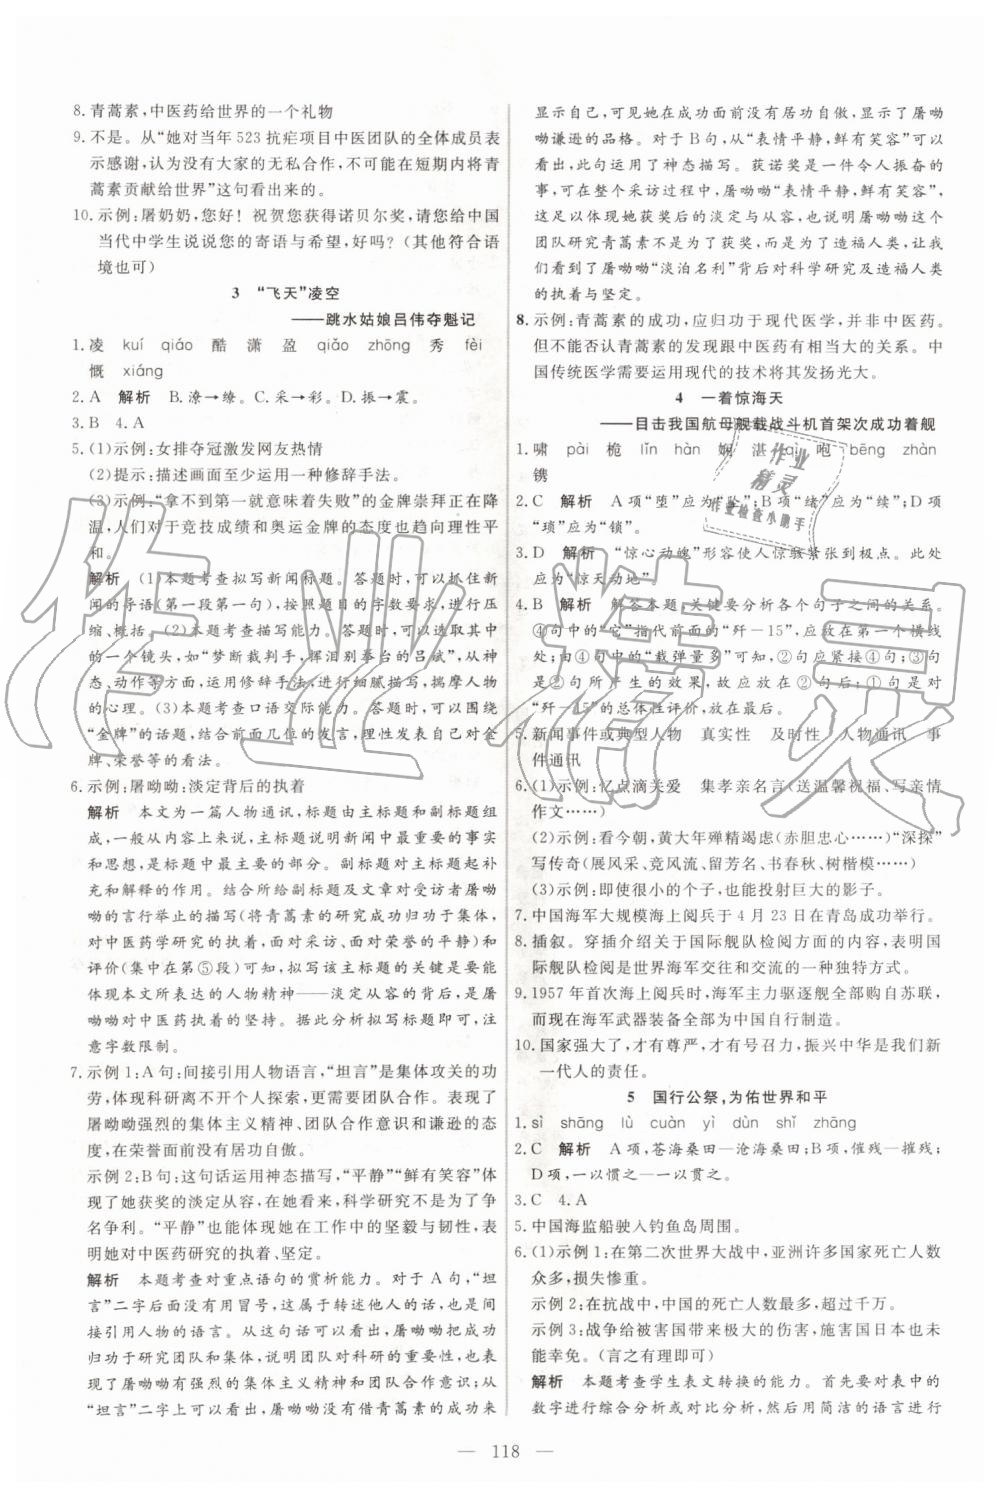 8. 青蒿素,中医药给世界的一个礼物
9. 不是。从“她对当年 523 抗疟项目中医团队的全体成员表
示感谢,认为没有大家的无私合作,不可能在短期内将青
蒿素贡献给世界”这句看出来的。
10. 示例:屠奶奶,您好!祝贺您获得诺贝尔奖,请您给中国
当代中学生说说您的寄语与希望,好吗?(其他符合语
境也可)
3 “飞天”凌空
——跳水姑娘吕伟夺魁记
1. 凌 kuí qiáo 酷 潇 盈 qiǎo zhōng 秀 fèi
慨 xiáng
2. A 解析 B. 潦→缭。C. 采→彩。D. 振→震。
3. B 4. A
5. (1)示例:女排夺冠激发网友热情
(2)提示:描述画面至少运用一种修辞手法。
(3)示例:“拿不到第一就意味着失败”的金牌崇拜正在降
温,人们对于竞技成绩和奥运金牌的态度也趋向理性平
和。
解析 (1)本题考查拟写新闻标题。答题时,可抓住新
闻的导语(第一段第一句),按照题目的字数要求,进行压
缩、概括。(2)本题考查描写能力。答题时,可以选取其中
的一个镜头,如“梦断裁判手,挥泪别擂台的吕斌”,从神
态、动作等方面,运用修辞手法,进行细腻描写,揣摩人物
的心理。(3)本题考查口语交际能力。答题时,可以围绕
“金牌”的话题,结合前面几位的发言,理性发表自己对金
牌、荣誉等的看法。
6. 示例:屠呦呦:淡定背后的执着
解析 本文为一篇人物通讯,标题由主标题和副标题组
成,一般从内容上来说,主标题说明新闻中最重要的事实
和思想,是标题中最主要的部分。副标题对主标题起补
充和解释的作用。结合所给副标题及文章对受访者屠呦
呦的言行举止的描写(将青蒿素的研究成功归功于集体,
对中医药学研究的执着,面对采访、面对荣誉的平静)和
评价(集中在第⑤段)可知,拟写该主标题的关键是要能
体现本文所表达的人物精神——淡定从容的背后,是屠
呦呦对中医药执着的坚持。据此分析拟写标题即可,注
意字数限制。
7. 示例 1:A 句:间接引用人物语言,“坦言”是集体攻关的成
功,体现科研离不开个人探索,更需要团队合作。表现了
屠呦呦强烈的集体主义精神、团队合作意识和谦逊的态
度,在荣誉面前没有居功自傲。
示例 2:B 句:这句话运用神态描写,“平静”“鲜有笑容”体
现了她获奖的淡定从容,在她看来,科学研究不是为了争
名争利。“平静”也能体现她在工作中的坚毅与韧性,表
明她对中医药研究的执着、坚定。
解析 本题考查对重点语句的赏析能力。对于 A 句,“坦
言”二字后面没有用冒号,这属于转述他人的话,也是间
接引用人物的语言。从这句话可以看出,屠呦呦把成功
归功于研究团队和集体,说明团队对科研的重要性,也表
现了屠呦呦有强烈的集体主义精神和团队合作意识;从
“坦言”二字上可以看出,屠呦呦没有借青蒿素的成功来
显示自己,可见她在成功面前没有居功自傲,显示了屠呦
呦谦逊的品格。对于 B 句,从“表情平静,鲜有笑容”可以
看出,此句运用了神态描写。获诺奖是一件令人振奋的
事,可在整个采访过程中,屠呦呦“表情平静,鲜有笑容”,
这足以体现她获奖后的淡定与从容,也说明屠呦呦这个
团队研究青蒿素不是为了获奖,而是为了造福人类,让我
们看到了屠呦呦“淡泊名利”背后对科学研究及造福人类
的执着与坚定。
8. 示例:青蒿素的成功,应归功于现代医学,并非中医药。
但不能否认青蒿素的发现跟中医药有相当大的关系。中
国传统医学需要运用现代的技术将其发扬光大。
4 一着惊海天
——目击我国航母舰载战斗机首架次成功着舰
1. 啸 pài 桅 lǐn hàn 娴 湛 咆 bēng zhōng
镌
2. C 解析 A 项“堕”应为“坠”;B 项“绪”应为“续”;D 项
“琐”应为“锁”。
3. D 解析 “惊心动魄”形容使人惊骇紧张到极点。此处
应为“惊天动地”。
4. B 解析 解答本题,关键要分析各个句子之间的关系。
④句中的“它”指代前面的“歼-15”,应放在第一个横线
处;由④句中的“载弹量多”可知,②句应紧接④句;③句
是②句所产生的效果,故应放在②句后;①句是对
“歼-15”的总体性评价,放在最后。
5. 新闻事件或典型人物 真实性 及时性 人物通讯 事
件通讯
6. (1)示例:忆点滴关爱 集孝亲名言(送温馨祝福、写亲情
作文……)
(2)示例:看今朝,黄大年殚精竭虑(赤胆忠心……)“深探”
写传奇(展风采、竞风流、留芳名、书春秋、树楷模……)
(3)示例:即使很小的个子,也能投射巨大的影子。
7. 中国海军大规模海上阅兵于 4 月 23 日在青岛成功举行。
8. 插叙。穿插介绍关于国际舰队检阅方面的内容,表明国
际舰队检阅是世界海军交往和交流的一种独特方式。
9. 1957 年首次海上阅兵时,海军主力驱逐舰全部购自苏联,
而现在海军武器装备全部为中国自行制造。
10. 国家强大了,才有尊严,才有号召力,振兴中华是我们新
一代人的责任。
5 国行公祭,为佑世界和平
1. sì shāng lù cuàn yì dùn shǐ zhāng
2. C 解析 A 项,苍海桑田—沧海桑田;B 项,催残—摧残;
D 项,一以惯之—一以贯之。
3. C 4. A
5. 中国海监船驶入钓鱼岛周围。
6. (1)示例 1:在第二次世界大战中,亚洲许多国家死亡人数
众多,损失惨重。
示例 2:在抗战中,中国的死亡人数最多,超过千万。
示例 3:战争给被害国带来极大的伤害,施害国日本也未
能幸免。(言之有理即可)
解析 本题考查学生表文转换的能力。首先要对表中的
数字进行综合分析或对比分析,然后用简洁的语言进行
— 118 —
作业精灵
作业
精灵
作业检查小助手